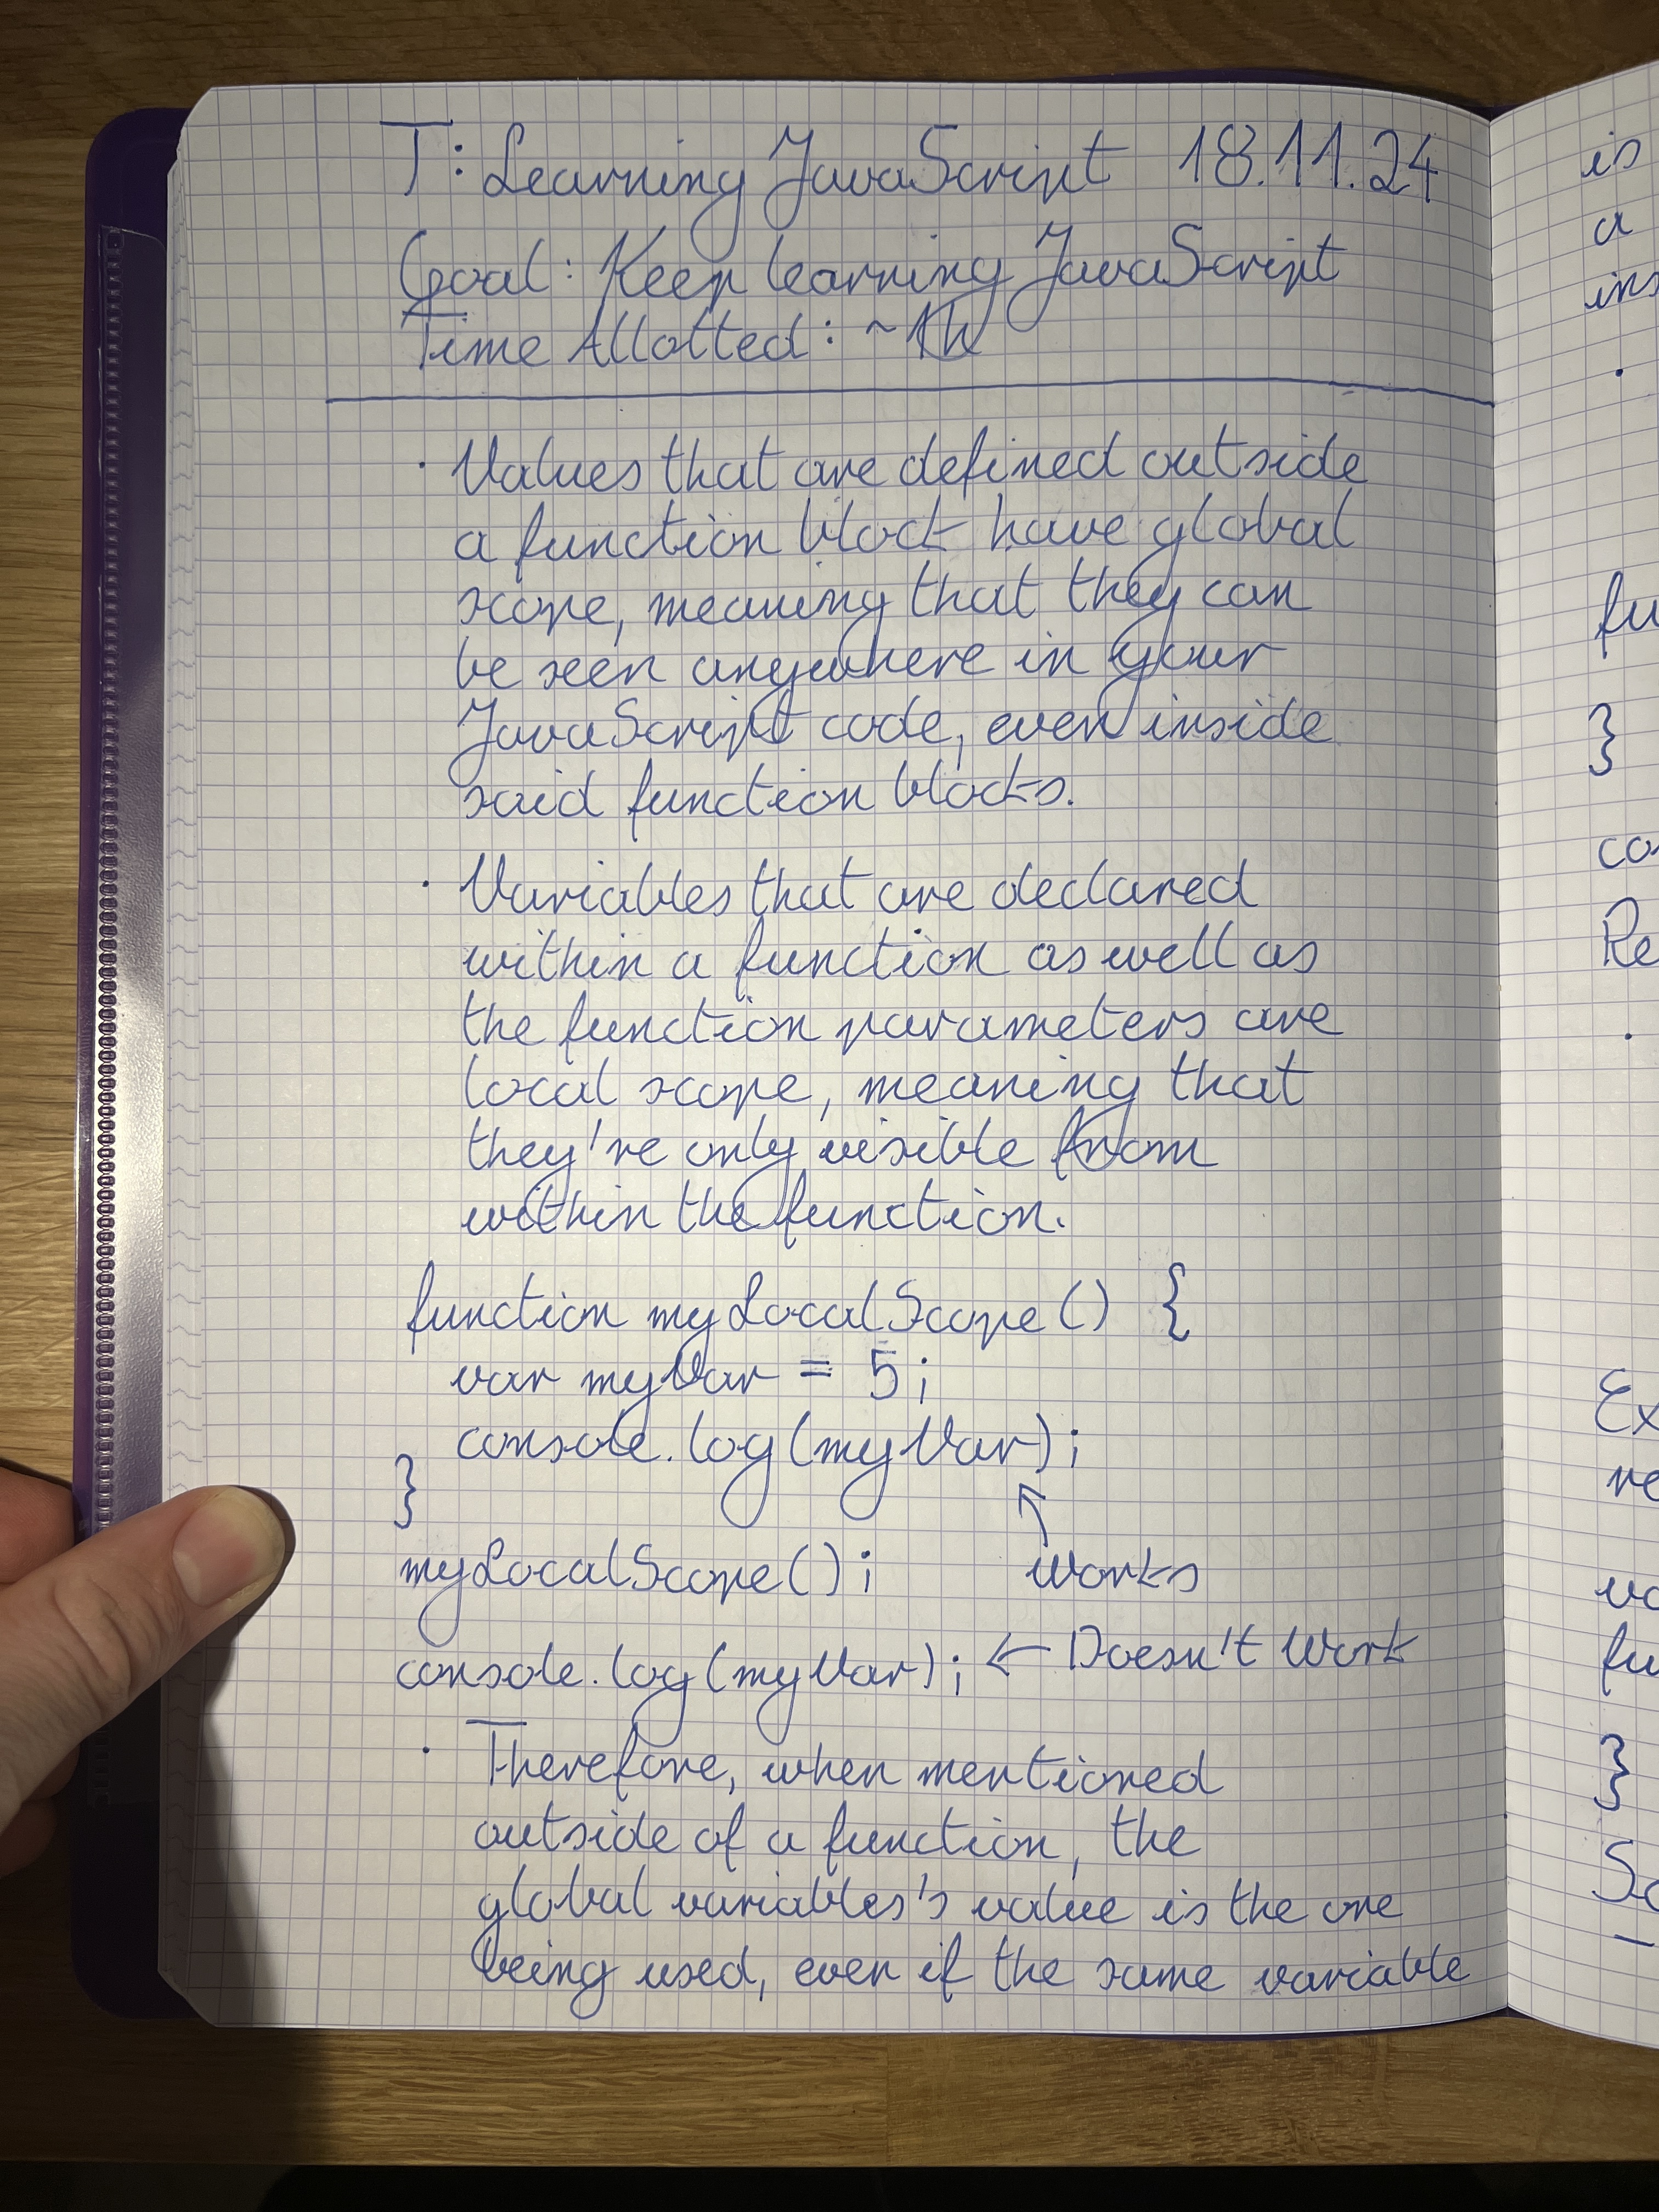 T: Learning JavaScript 18.11.24
Goal: Keep learning JavaScript
Time Allotted: ~1h
· Values that are defined outside
a function block have global
scope, meaning that they can
be seen anywhere in your
JavaScript code, even inside
said function blocks.
· Variables that are declared
within a function as well as
the function parameters are
local scope, meaning that
they're only visible from
within the function.
function myLocalScope() {
var myVar = 5;
console.log(myVar);
}
myLocalScope();
works
console.log(myVar); ← Doesn't Work
· Therefore, when mentioned
outside of a function, the
global variables's value is the one
being used, even if the same variable
is
a
}
}